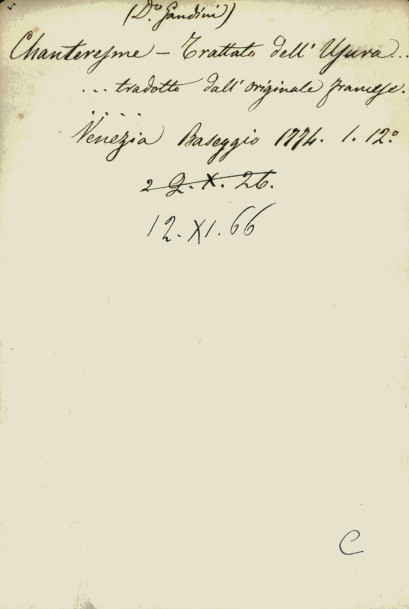 (D.º Gandini)
Chanteresme - Trattato dell' Usura...
... tradotto dall' originale francese.
.. .. . .
Venezia Baseggio 1774. 1. 12º
2 Q. X. 26.
12. XI. 66
C